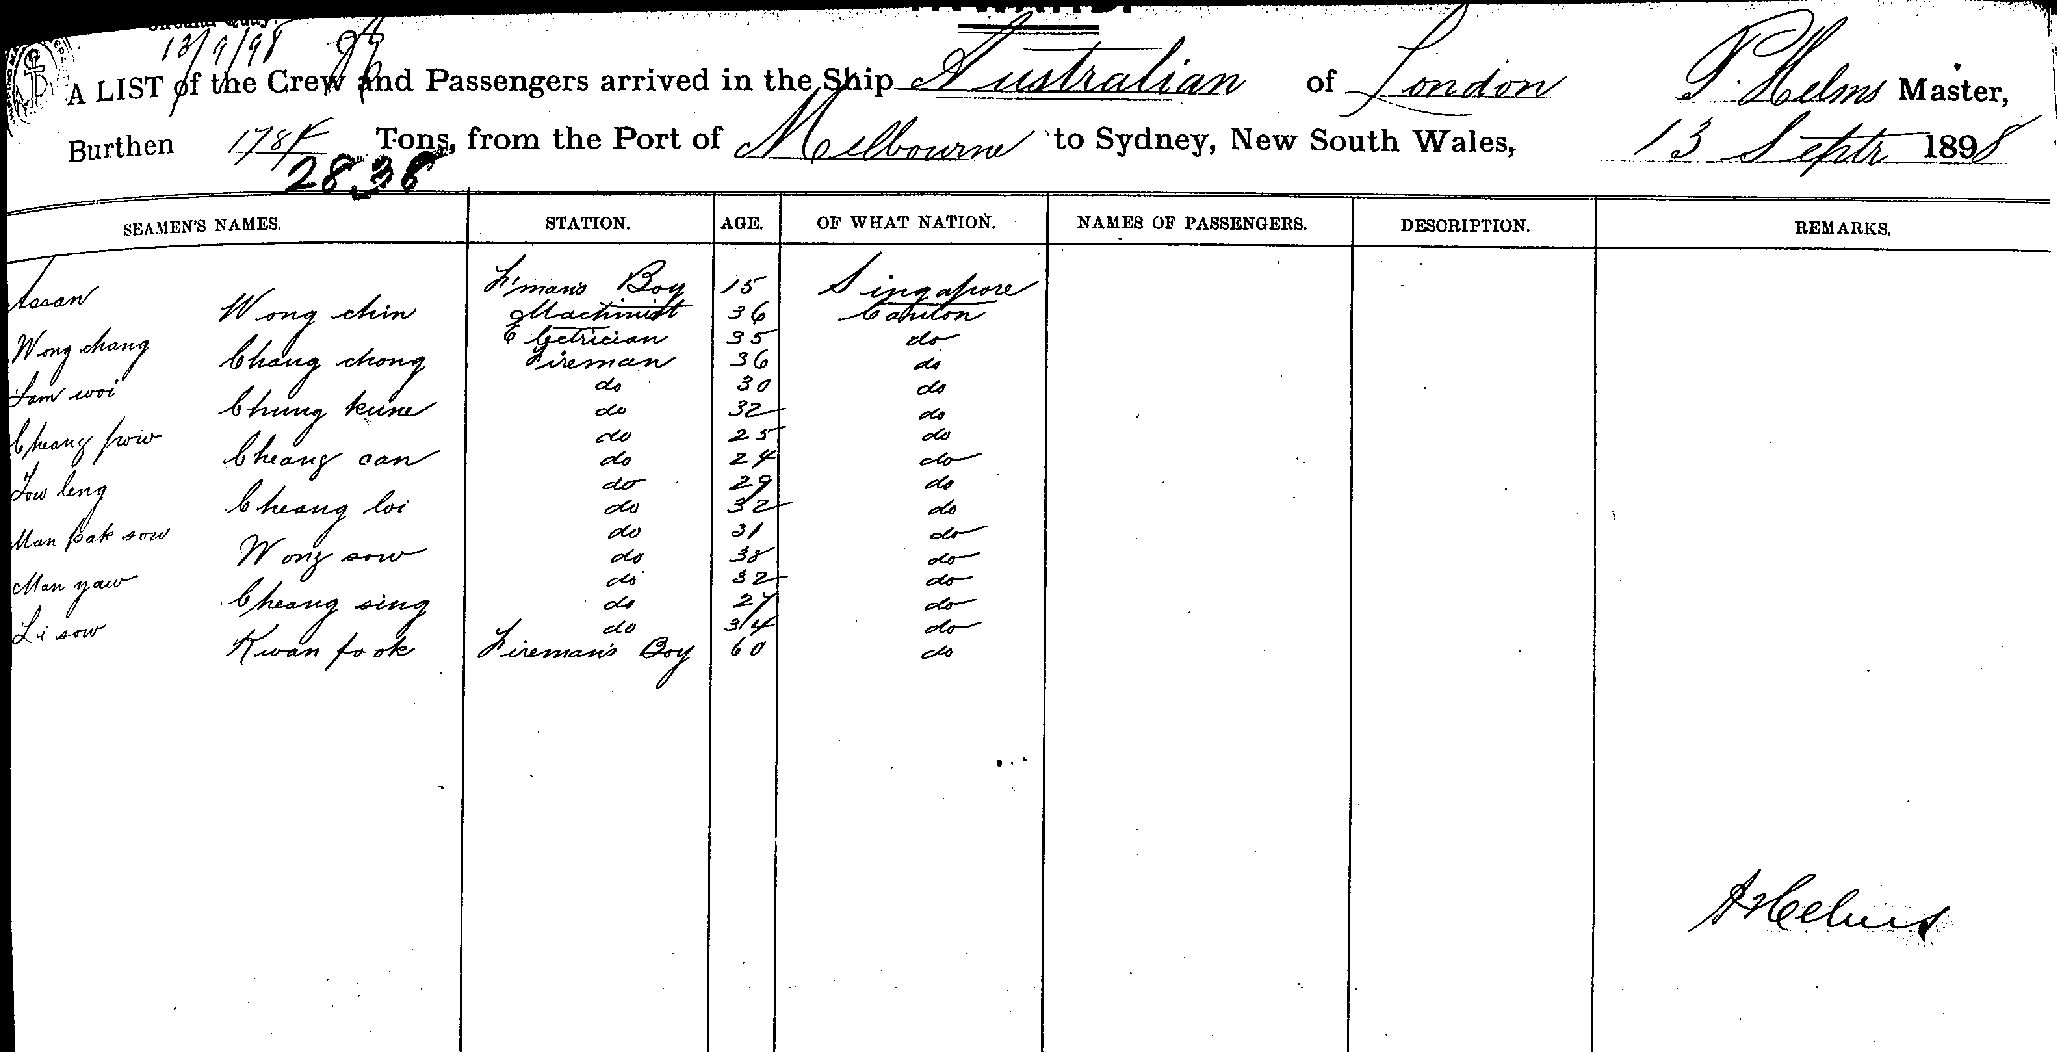 13/9/98
A LIST of the Crew and Passengers arrived in the Ship Australian of London P. Helms Master,
Burthen 1784 Tons, from the Port of Melbourne to Sydney, New South Wales, 13 Septr 1898
2838
SEAMEN'S NAMES. STATION. AGE. OF WHAT NATION. NAMES OF PASSENGERS. DESCRIPTION. REMARKS.
Assan F'man's Boy 15 Singapore
Wong chin Machinist 36 Canton
Wong chang Electrician 35 do
Chang chong Fireman 36 do
Sam woi do 30 do
Chung kune do 32 do
Cheang pow do 25 do
Cheang can do 24 do
Tow leng do 29 do
Cheang loi do 32 do
Man pak sow do 31 do
Wong sow do 38 do
Man yaw do 32 do
Cheang sing do 27 do
Li sow do 34 do
Kwan fook Fireman's Boy 60 do
P Helms